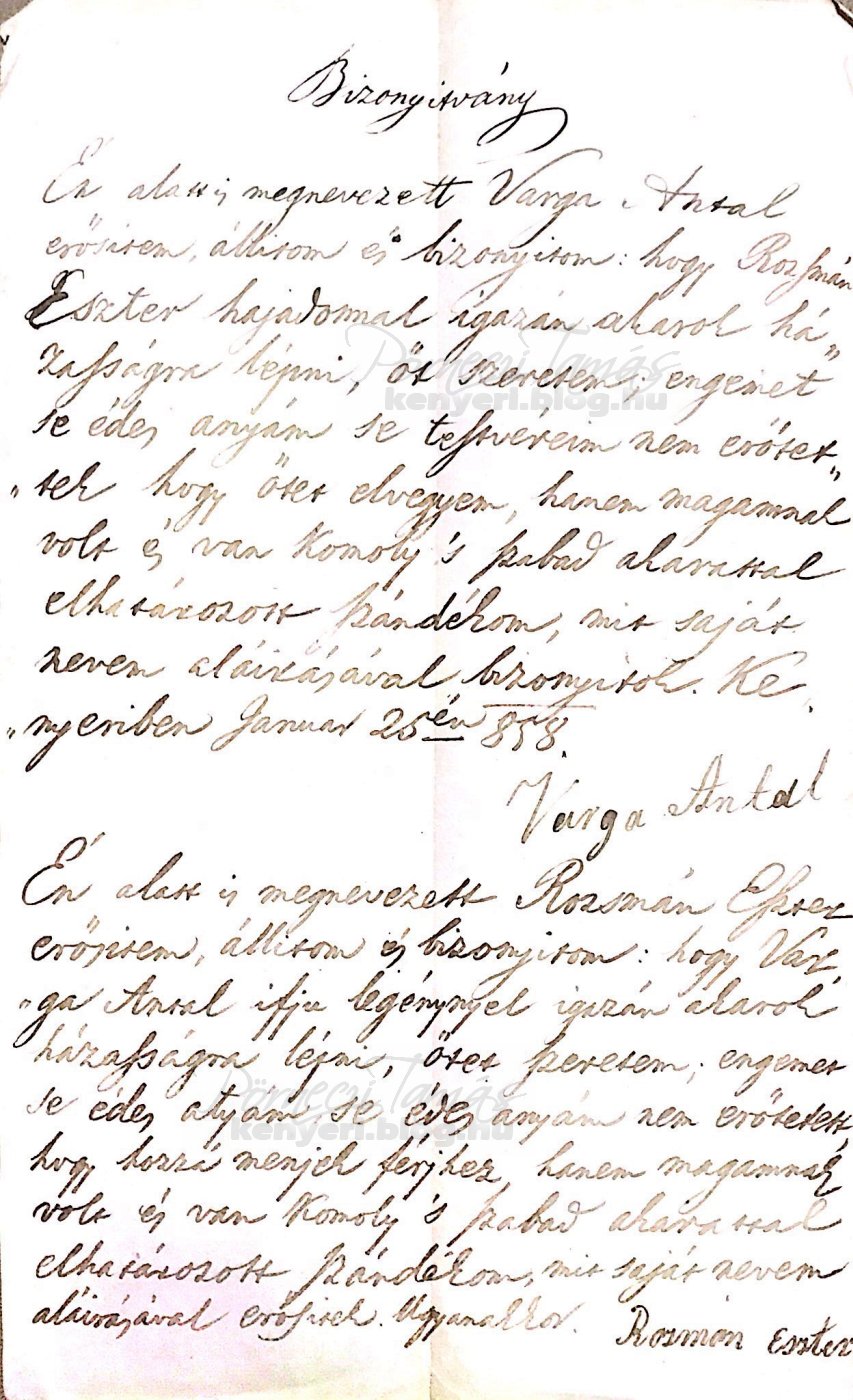 Bizonyitvány
Én alatt is megnevezett Varga Antal
erősitem, állitom és bizonyitom: hogy Rozsmán
Eszter hajadonnal igazán akarok há„
zasságra lépni, őt szeretem; engemet
se édes anyám se testvéreim nem erőtet„
„tek hogy őtet elvegyem, hanem magamnak
volt és van komoly 's szabad akarattal
elhatározott szándékom, mit saját
nevem aláirásával bizonyitok. Ke„
„nyeriben Januar 25én 858.
Varga Antal
Én alatt is megnevezett Rozsmán Eszter
erősitem, állitom és bizonyitom: hogy Var„
„ga Antal ifju legénynyel igazán akarok
házasságra lépni, őtet szeretem; engemet
se édes atyám, se édes anyám nem erőtetett,
hogy hozzá menjek férjhez, hanem magamnak
volt és van komoly 's szabad akarattal
elhatározott szándékom, mit saját nevem
aláirásával erősitek. Ugyanakkor.
Rosmán Eszter
Pördeczi Tamás
kenyeri.blog.hu
Pördeczi Tamás
kenyeri.blog.hu